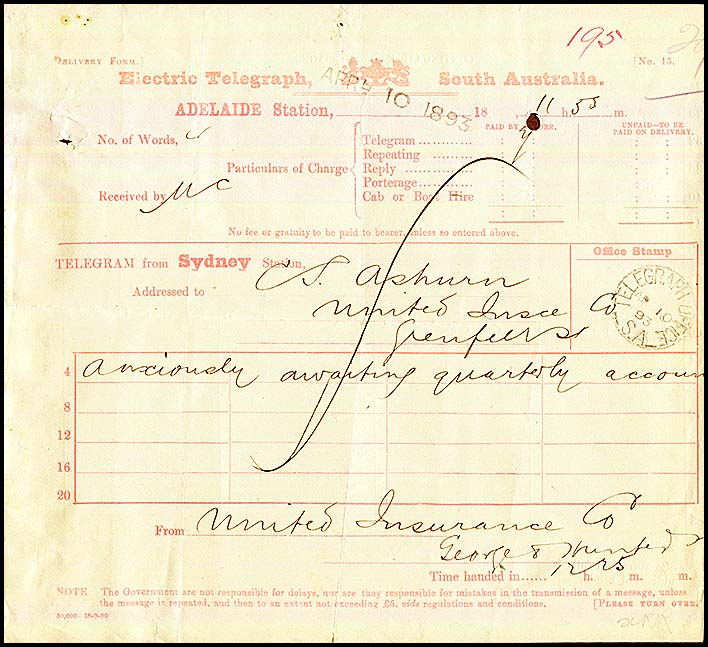 195
[DELIVERY FORM.] [No. 13.
Electric Telegraph, South Australia.
APR 10 1893
ADELAIDE Station, 18 11 h. 55 m.
No. of Words, 4
PAID BY
UNPAID—TO BE PAID ON DELIVERY.
Particulars of Charge
Telegram
Repeating
Reply
Porterage
Cab or Boat Hire
Received by Mc
No fee or gratuity to be paid to bearer, unless so entered above.
TELEGRAM from Sydney Station,
Office Stamp
Addressed to S. Ashurn
United Insce Co
Grenfell St
TELEGRAPH OFFICE
10
93
S.A.
4 Anxiously awaiting quarterly accoun
8
12
16
20
From United Insurance Co
George &
Time handed in...... 12 h. 25 m.
NOTE The Government are not responsible for delays, nor are they responsible for mistakes in the transmission of a message, unless
the message is repeated, and then to an extent not exceeding £5, vide regulations and conditions. [PLEASE TURN OVER.